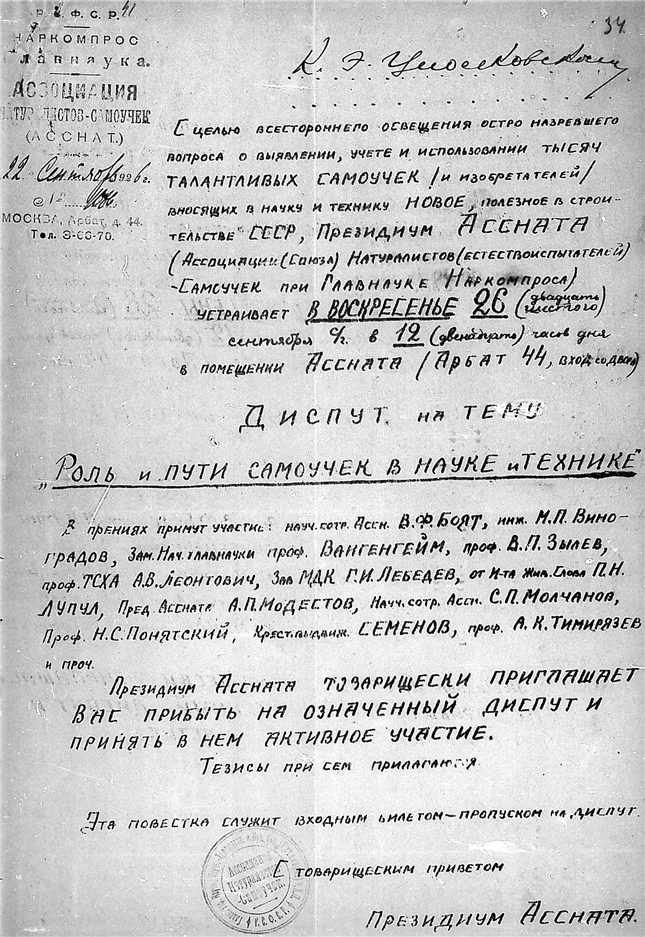 Р. С. Ф. С. Р.
34.
НАРКОМПРОС
Главнаука.
АССОЦИАЦИЯ
НАТУРАЛИСТОВ-САМОУЧЕК
(АССНАТ.)
22 Сентября 1926 г.
МОСКВА, Арбат, д. 44.
Тел. 3-66-70.
К. Э. Циолковскому
С целью всестороннего освещения остро назревшего
вопроса о выявлении, учете и использовании тысяч
талантливых самоучек /и изобретателей/
вносящих в науку и технику новое, полезное в строи-
тельстве СССР, Президиум Ассната
(Ассоциации (Союза) Натуралистов (естествоиспытателей)
-Самоучек при Главнауке Наркомпроса)
устраивает в воскресенье 26 (двадцать шестого)
сентября с/г. в 12 (двенадцать) часов дня
в помещении Ассната (Арбат 44, вход со двора)
Диспут на тему
„Роль и пути самоучек в науке и технике"
В прениях примут участие: науч. сотр. Ассн. В.Ф. Боят, инж. М.П. Вино-
градов, Зам. Нач. главнауки проф. Вангенгейм, проф. В.П. Зылев,
проф. ТСХА А.В. Леонтович, Зав МДК Г.И. Лебедев, от И-та Жив. Слова П.Н.
Лупул, Пред. Ассната А.П. Модестов, Науч. сотр. Ассн. С.П. Молчанов,
Проф. Н.С. Понятский, Крест. выдвиж. Семенов, проф. А.К. Тимирязев
и проч.
Президиум Ассната товарищески приглашает
Вас прибыть на означенный диспут и
принять в нем активное участие.
Тезисы при сем прилагаются
Эта повестка служит входным билетом-пропуском на диспут.
С товарищеским приветом
Президиум Ассната.
Ассоциация
Натуралистов
Самоучек